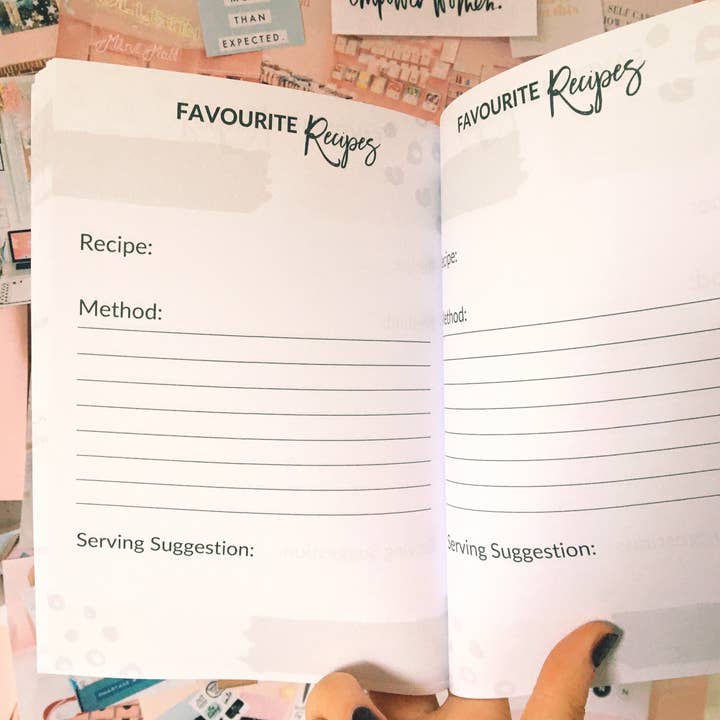 THAN
EXPECTED.
empower women.
this
SELF CAN
HOW
Mini Mall
FAVOURITE Recipes
Recipe:
Method:
Serving Suggestion:
FAVOURITE Recipes
cipe:
ethod:
Serving Suggestion: